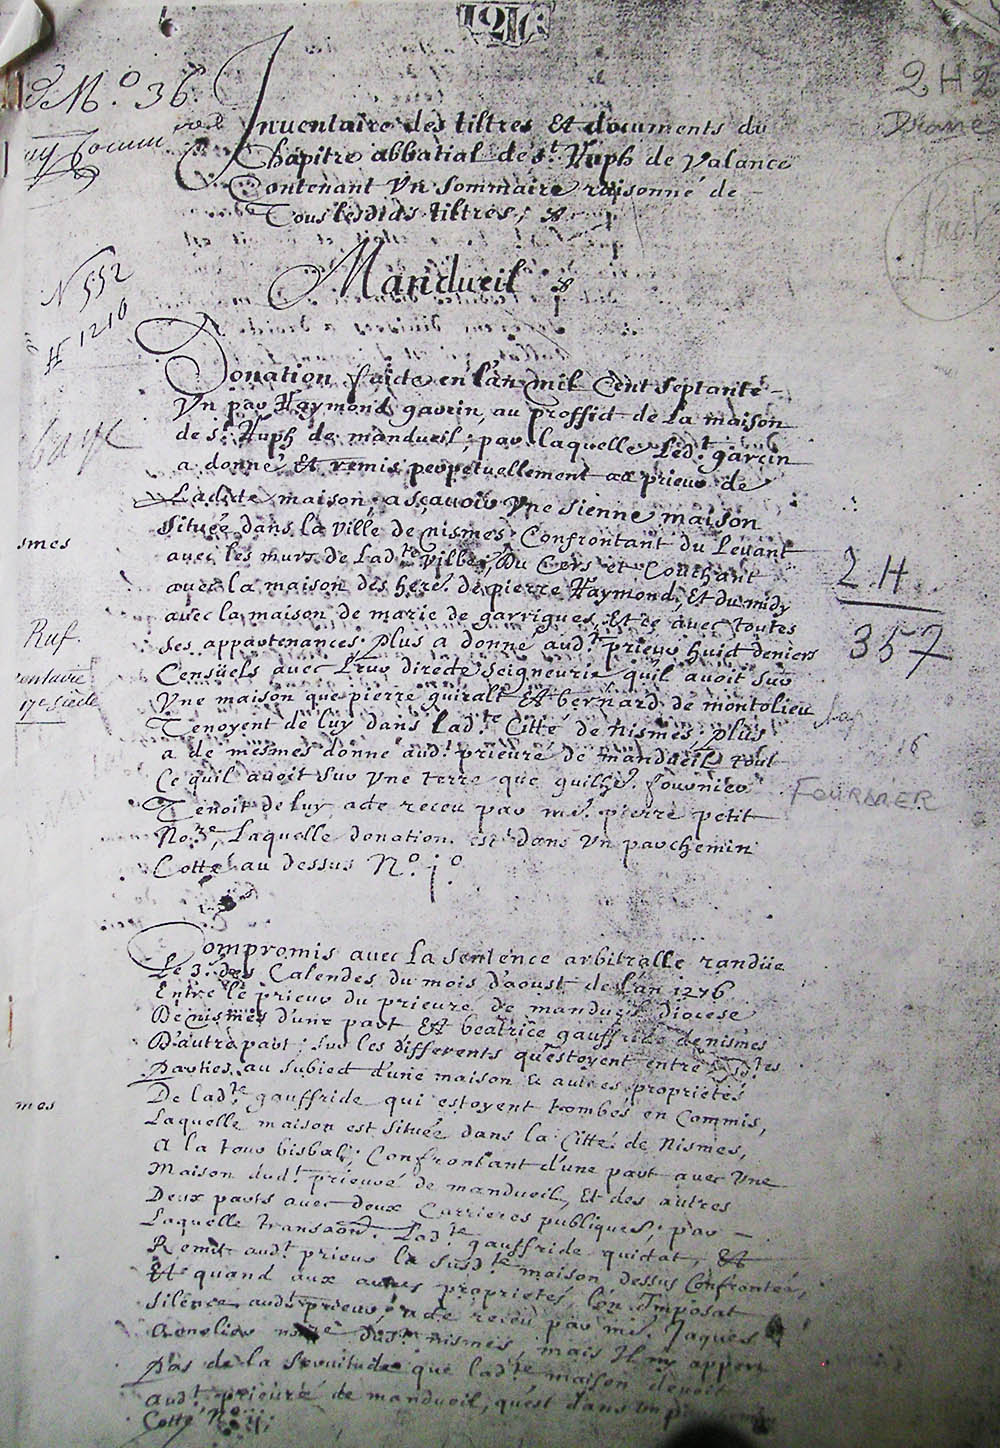 1216
N.o 36
2 H 2
Inventaire des tiltres Et documents du
Chapitre abbatial de st Ruph de Valance
Contenant Vn Sommaire raisonné de
Tous lesdids tiltres;
N 552
H 1210
Mandueil
Donation faide en l'an Mil Cent septante
Vn par Raymond garcin, au proffict de la maison
de st Ruph de mandueil; par laquelle Ledt garcin
a donné Et remis perpetuellement au prieur de
Ladite maison a sçavoir Vne sienne maison
Située dans la ville de nismes Confrontant du Leuant
auec les murs de Ladte ville; Du Cers et Couchant
auec la maison des here. de pierre Raymond, Et du midy
auec la maison de marie de garrigues, Et ce avec toutes
ses appartenances. Plus a donné audt prieur huict deniers
Censuels avec Leur directe Seigneurie qu'il avoit sur
Vne maison que pierre guiralt Et bernard de montolieu
Tenoyent de luy dans Ladte Citté de nismes; plus
a de mesmes donné audt prieuré de mandueil tout
Ce quil avoit sur Vne terre que guilhe. fournier
Tenoit de luy acte receu par me. pierre petit
No.re, Laquelle donation est dans Vn parchemin
Cotté au dessus N.o j.o
smes
2 H
357
Ruf.
entaire
17e Siècle
16
FOURNIER
Compromis auec La sentence arbitralle randüe
Le 3.e des Calendes du mois d'aoust de l'an 1276
Entre le prieur du prieuré de mandueil diocese
De nismes d'une part Et beatrice gauffride de nismes
D'autrâ part; sur les differents qu'estoyent entre
Parties au subiect d'une maison & autres proprietés
De ladte gauffride qui estoyent tombés en Commis,
Laquelle maison est située dans la Citté de Nismes,
A la tour bisbal; Confrontant d'une part auec Vne
Maison dudt prieuré de mandueil, Et des autres
Deux parts auec deux Carrieres publiques; par
Laquelle transaon. Ladte gauffride quictat, Et
Remit audt prieur la susdte maison dessus Confrontée,
Et quand aux autres proprietés l'on Imposat
silence audt prieur; acte receu par me. Jaques
nore dudt nismes, mais Il ny appert
Pas de la servitude que ladte maison devoit
audt prieuré de mandueil, qu'est dans Vn
Cotté No ij;
mes